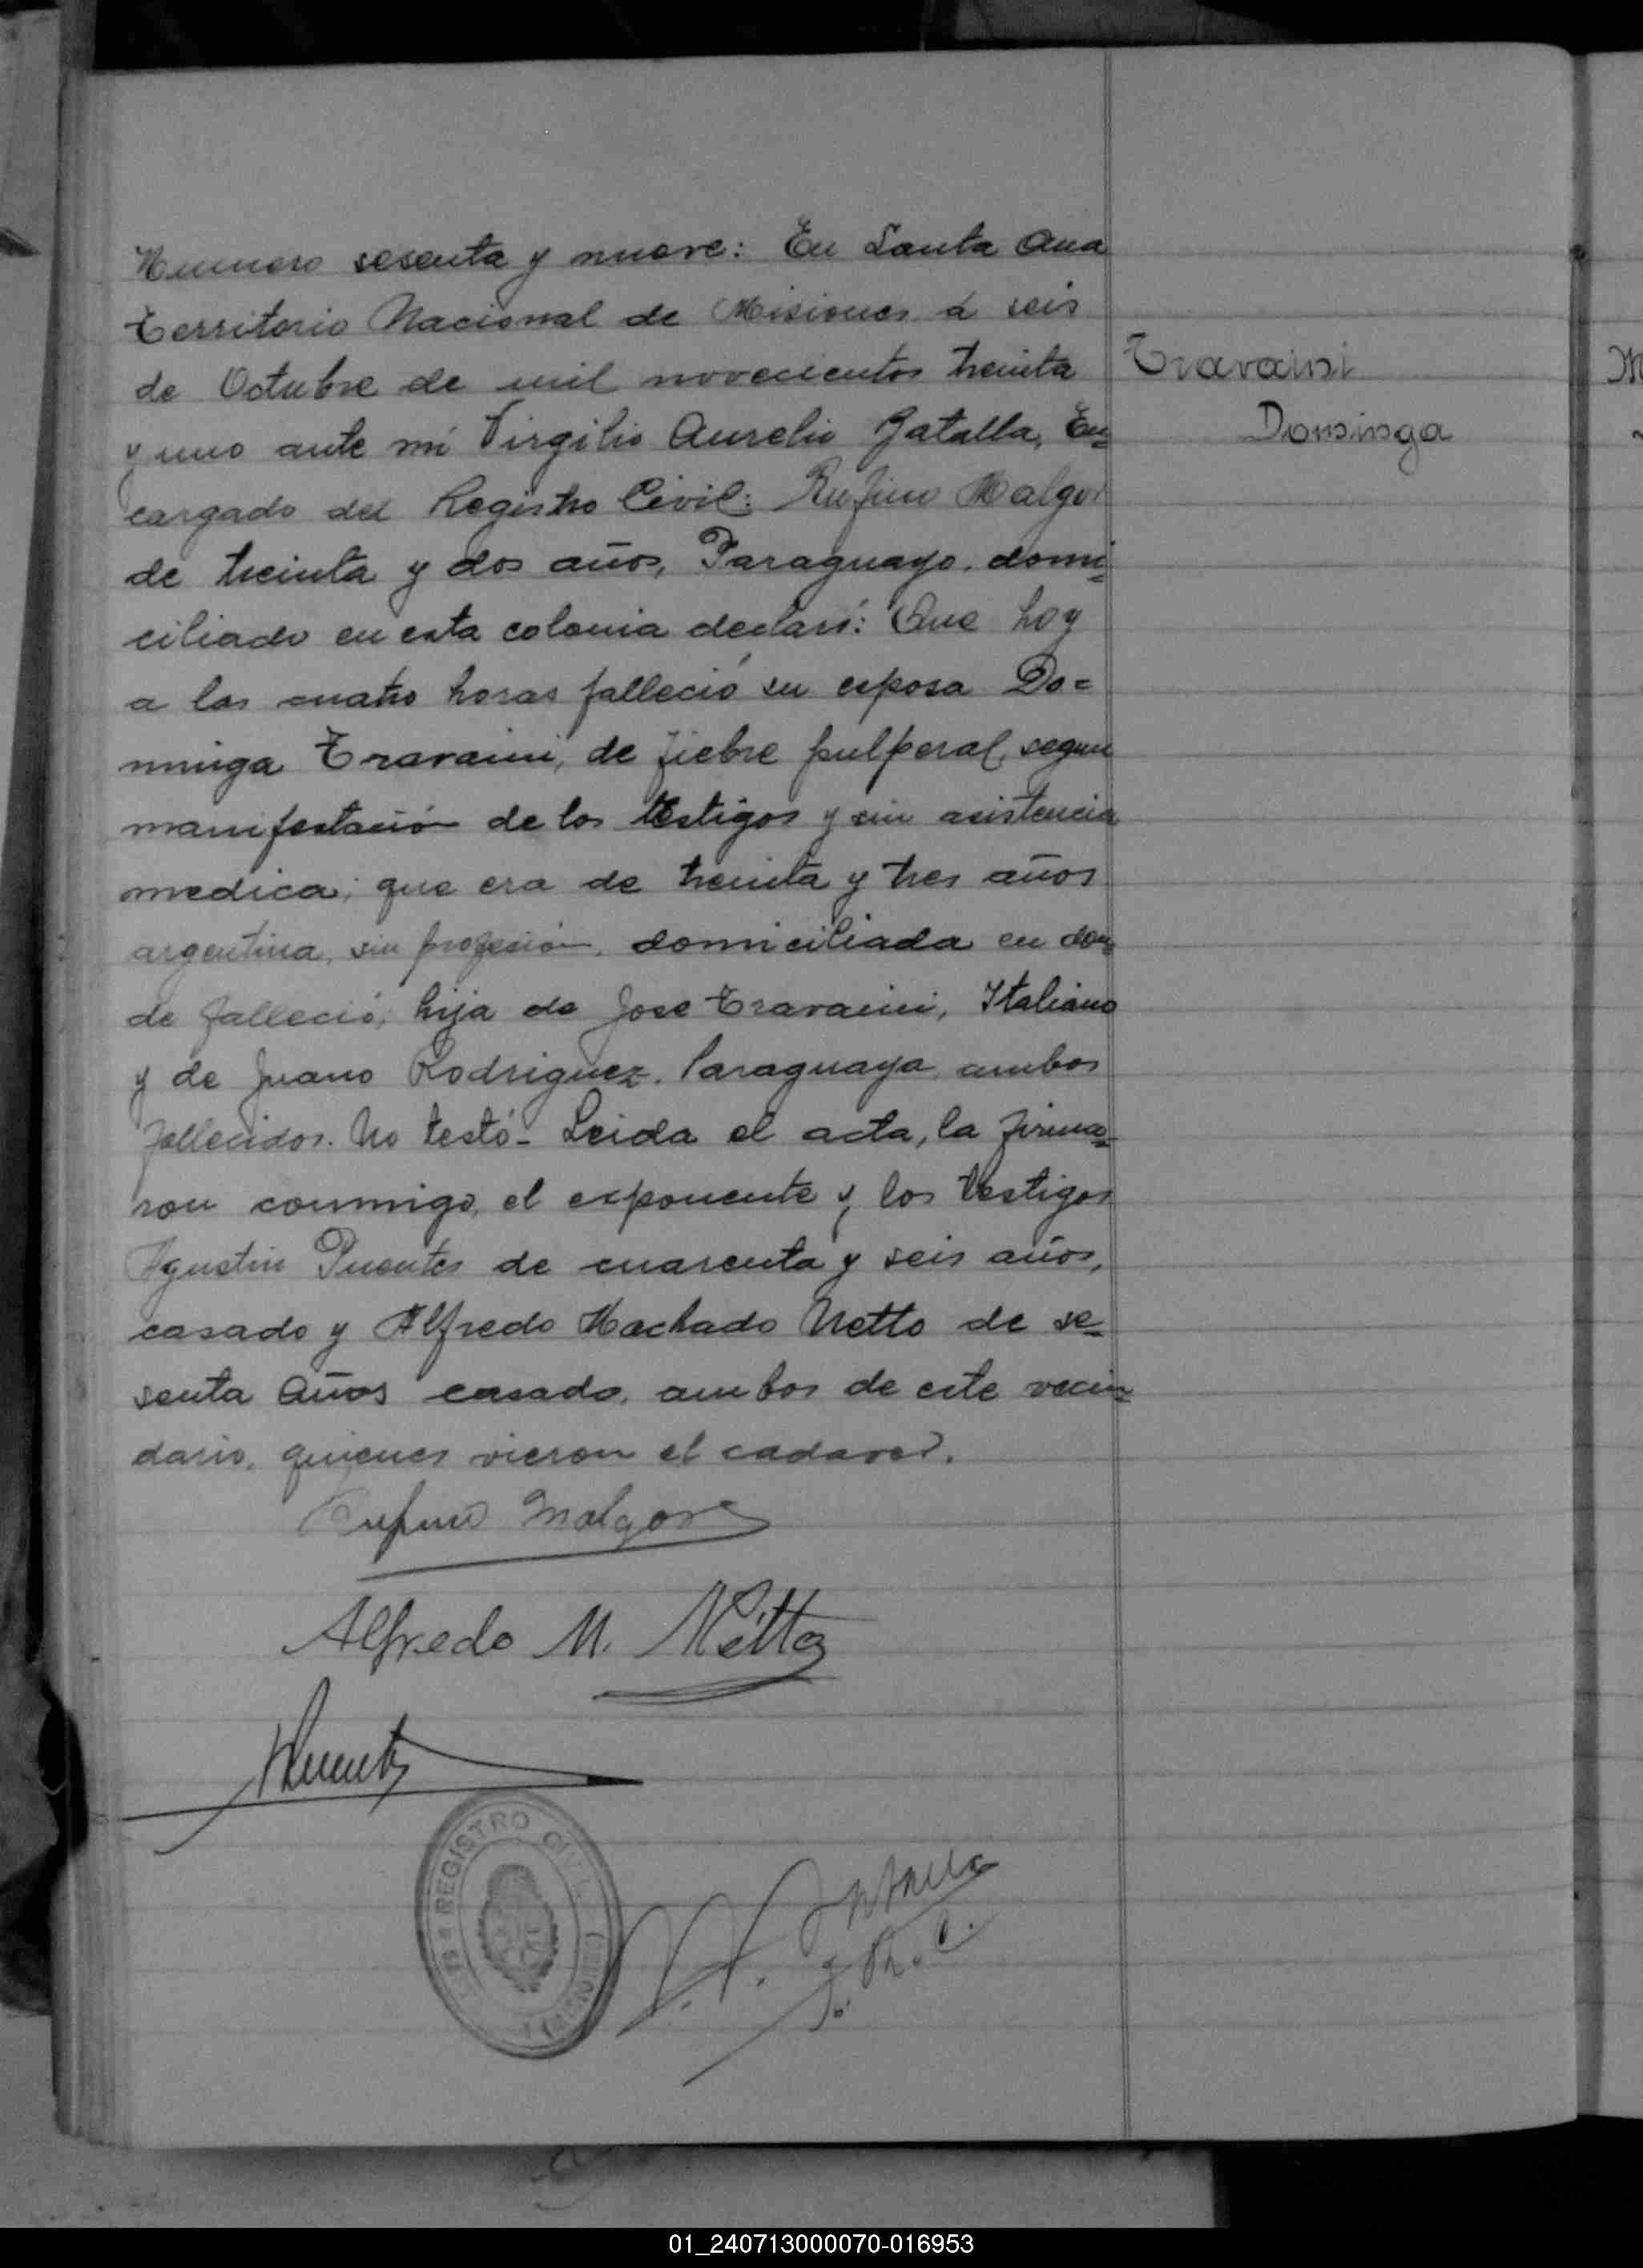 Numero sesenta y nueve: En Santa Ana
Territorio Nacional de Misiones á seis
de Octubre de mil novecientos treinta
y uno ante mí Virgilio Aurelio Gatalla, En=
cargado del Registro Civil: Rufino Malgor
de treinta y dos años, Paraguayo, domi=
ciliado en esta colonia declaró: Que hoy
a las cuatro horas falleció su esposa Do=
minga Travaini, de fiebre pulperal, segun
manifestación de los testigos y sin asistencia
medica; que era de treinta y tres años
argentina, sin profesión, domiciliada en don=
de falleció; hija de Jose Travaini, Italiano
y de Juana Rodriguez, Paraguaya, ambos
fallecidos. No testó- Leida el acta, la firma=
ron conmigo, el exponente y los testigos
Agustin Puentes de cuarenta y seis años,
casado y Alfredo Machado Netto de se=
senta años casado, ambos de este vecin=
dario, quienes vieron el cadaver.
Travaini
Dominga
Rufino Malgor
Alfredo M. Netto
Puentes
REGISTRO CIVIL
01_240713000070-016953